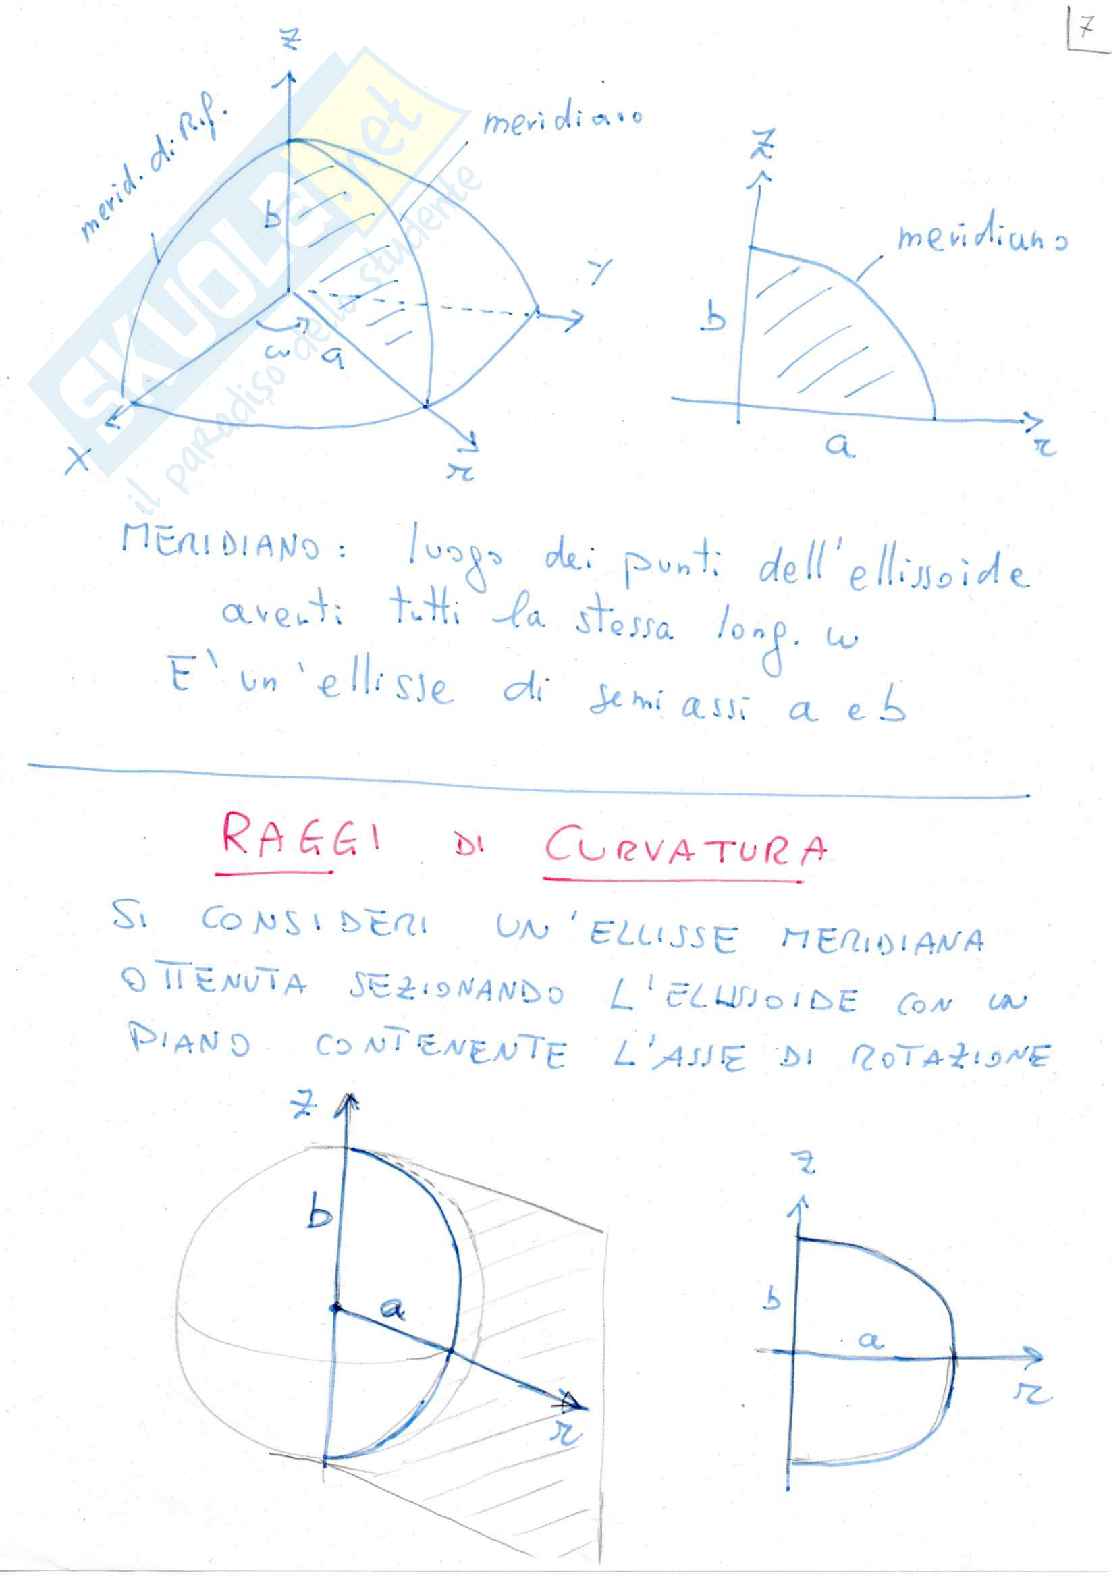 7
Z
merid. di Rif.
meridiano
b
Y
ω
a
X
r
Z
meridiano
b
a
r
SKUOLA.net
il paradiso dello studente
MERIDIANO: luogo dei punti dell'ellissoide
aventi tutti la stessa long. ω
E' un'ellisse di semiassi a e b
RAGGI DI CURVATURA
SI CONSIDERI UN'ELLISSE MERIDIANA
OTTENUTA SEZIONANDO L'ELLISSOIDE CON UN
PIANO CONTENENTE L'ASSE DI ROTAZIONE
Z
b
a
r
Z
b
a
r